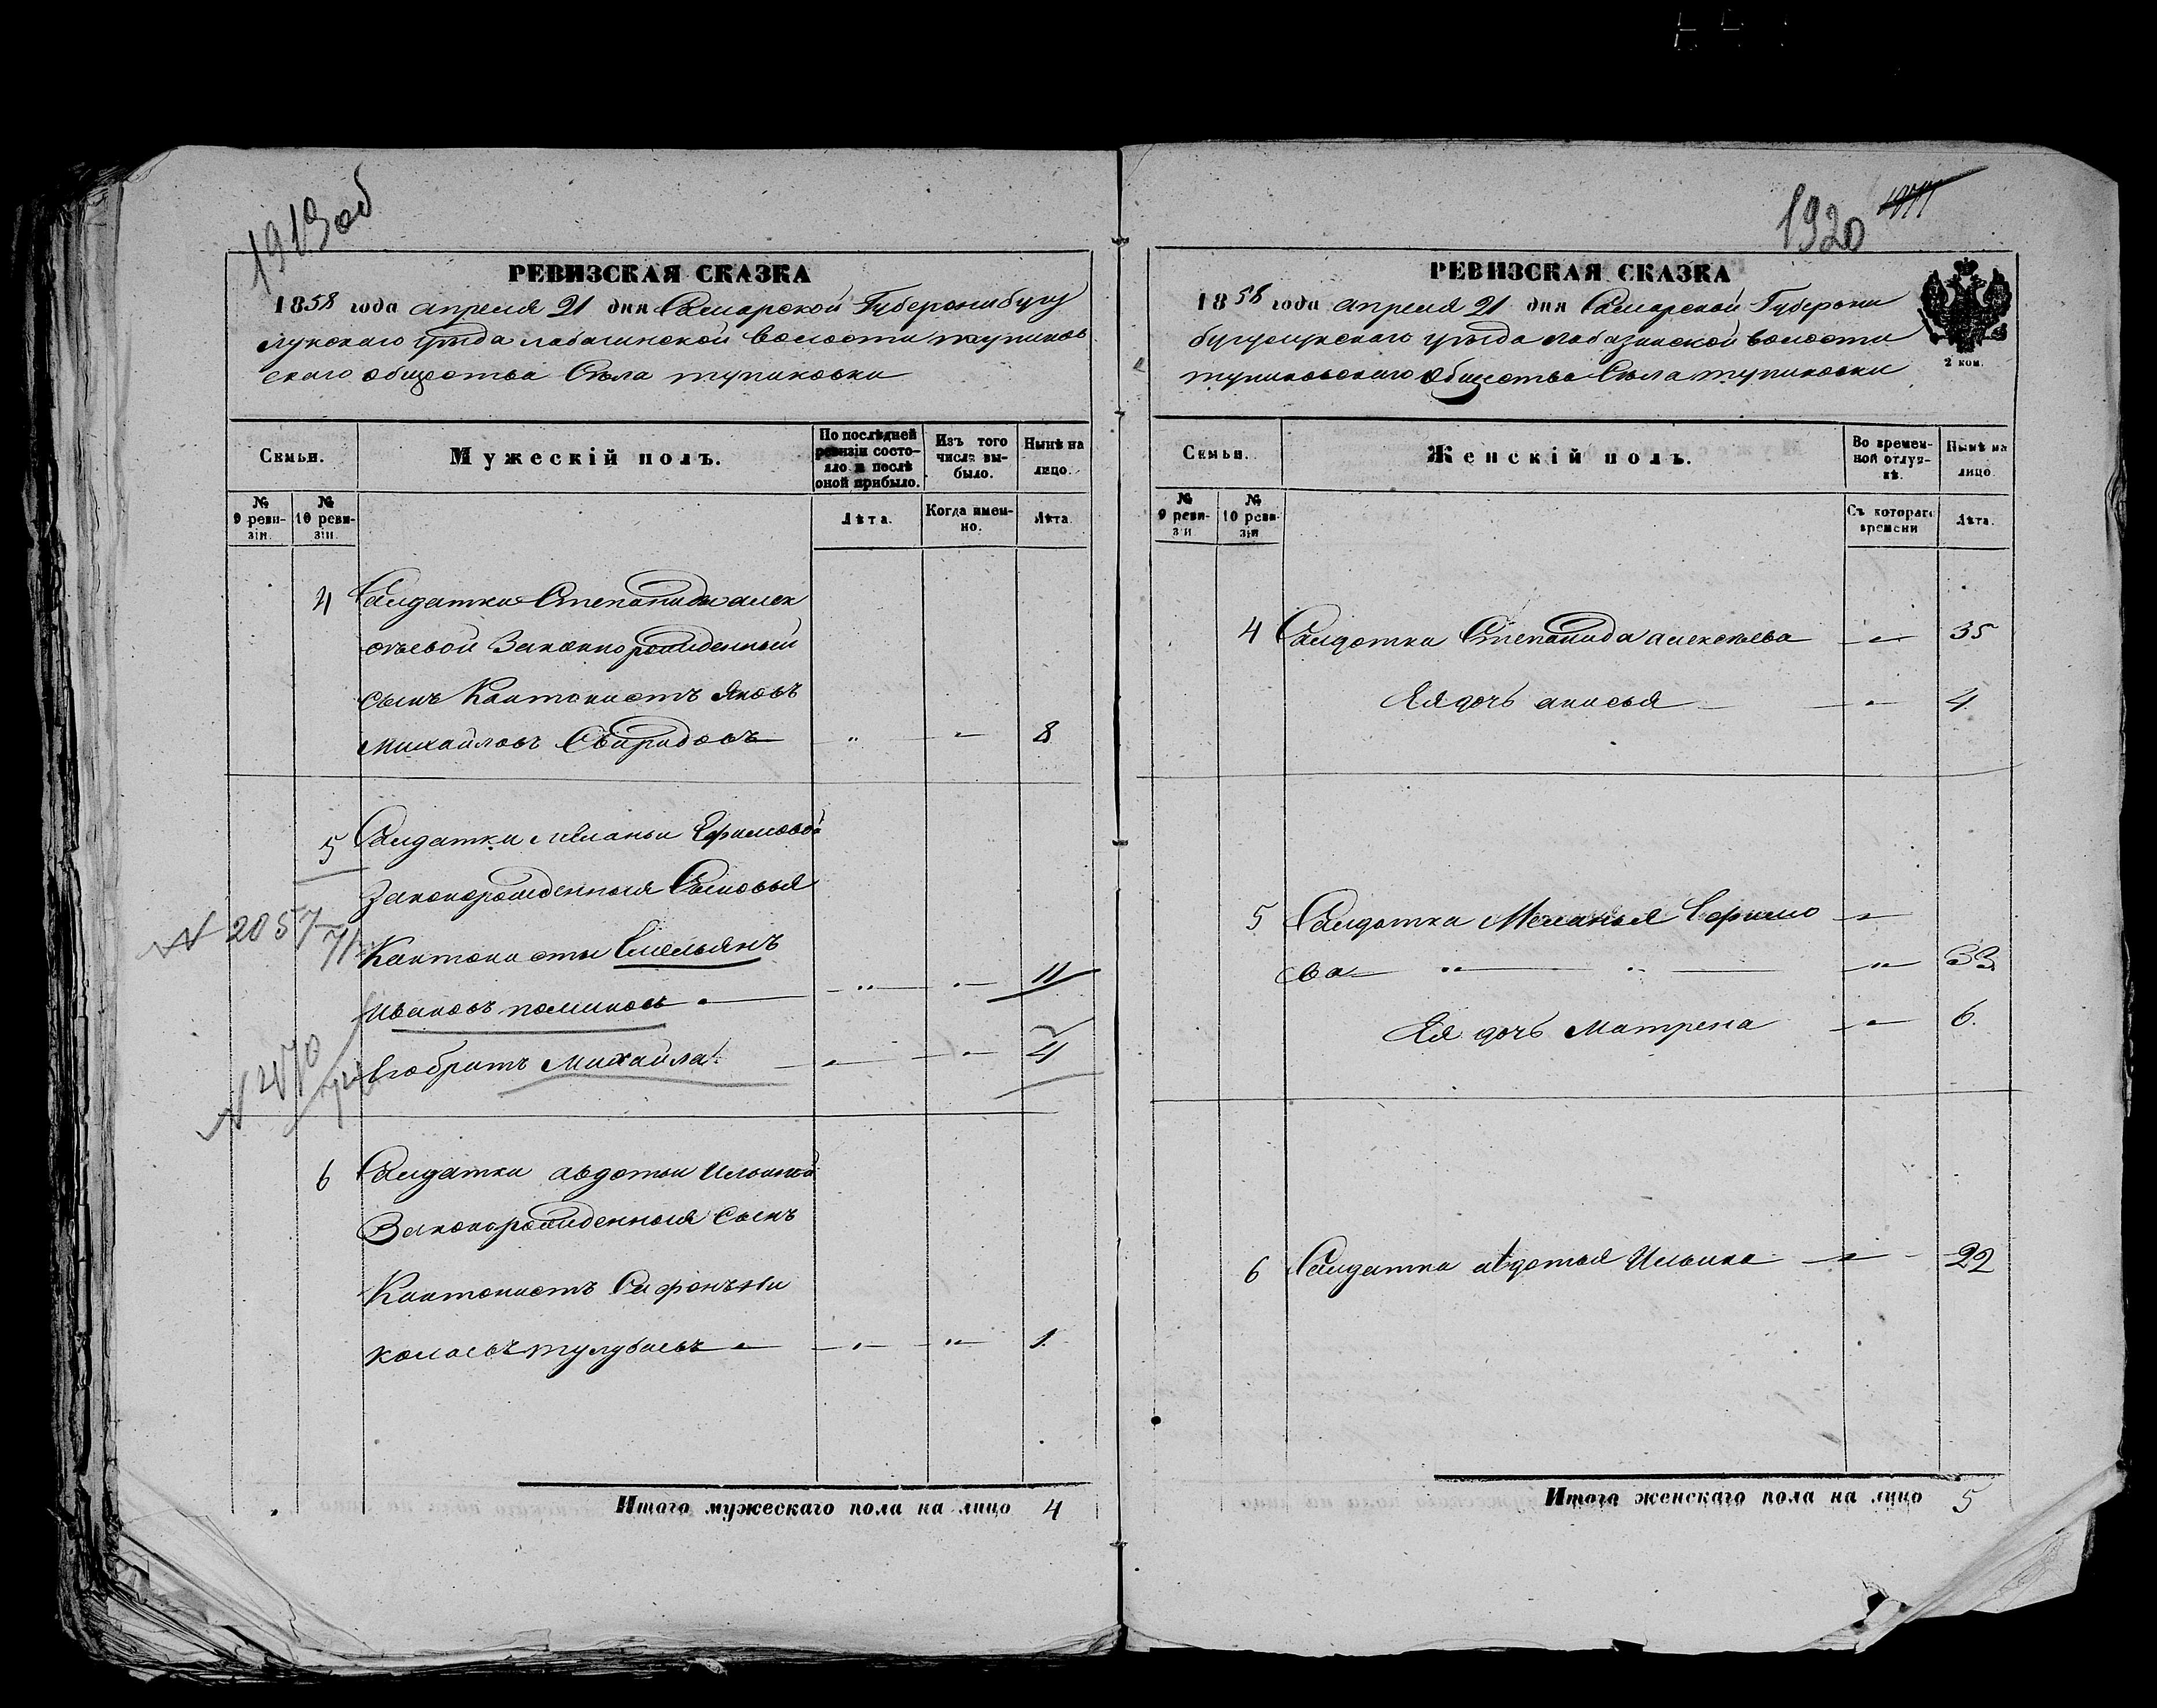 1919об
РЕВИЗСКАЯ СКАЗКА
1858 года апреля 21 дня Самарской Губернии бугу
лускаго уезда лабазинской волости тупиков
скаго общества Села тупиковки
Семьи.
Мужескій полъ.
По послѣдней ревизіи состояло и послѣ оной прибыло.
Изъ того числа выбыло.
Нынѣ на лицо.
№ 9 ревизіи.
№ 10 ревизіи.
Лѣта.
Когда именно.
Лѣта.
4 Салдатки Степаниды алек
сѣевой Законнорожденный
сынъ Кантонистъ Яковъ
Михайловъ Свиридовъ — „ — „ 8
5 Салдатки Меланьи Ефимовой
Законорожденныя Сыновья
N 2057
71
Кантонисты Емельянъ
Ивановъ поминовъ — „ — „ 11
Егобратъ Михайла — „ — „ 4
6 Салдатки авдотьи Ильиной
Законорожденныя Сынъ
Кантонистъ Сафонъ Ни
колаевъ тулубаевъ — „ — „ 1.
Итого мужескаго пола на лицо 4
1920
РЕВИЗСКАЯ СКАЗКА
1858 года апреля 21 дня Самарской Губернии
бугурускаго уезда лабазинской волости
тупиковскаго общества Села тупиковки
2 коп.
Семьи.
Женскій полъ.
Во временной отлучкѣ.
Нынѣ на лицо.
№ 9 ревизіи
№ 10 ревизіи
Съ котораго времени
Лѣта.
4 Салдатка Степанида алексѣева — „ — 35
Ея дочь анисья — „ — 4
5 Салдатка Меланья Ефимо — „ —
ва — „ — „ — „ — 33
Ея дочь Матрена — „ — 6.
6 Салдатка авдотья Ильина — „ — 22
Итого женскаго пола на лицо 5